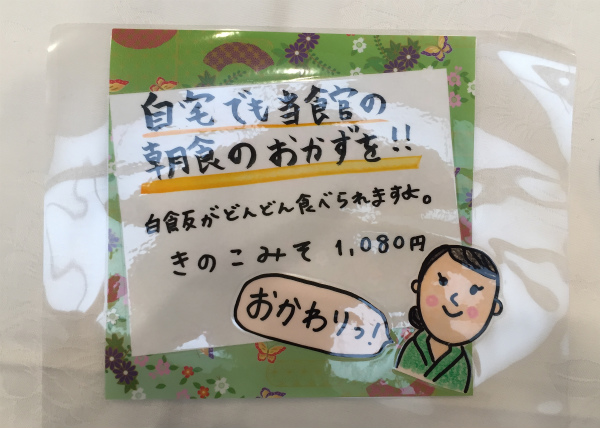 自宅でも当食官の
朝食のおかずを!!
白食反がどんどん食べられますよ。
きのこみそ 1,080円
おかわりっ!